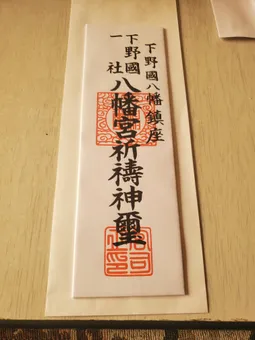 下野國八幡鎮座
下野國
一社
八幡宮祈禱神璽
宮司
之印